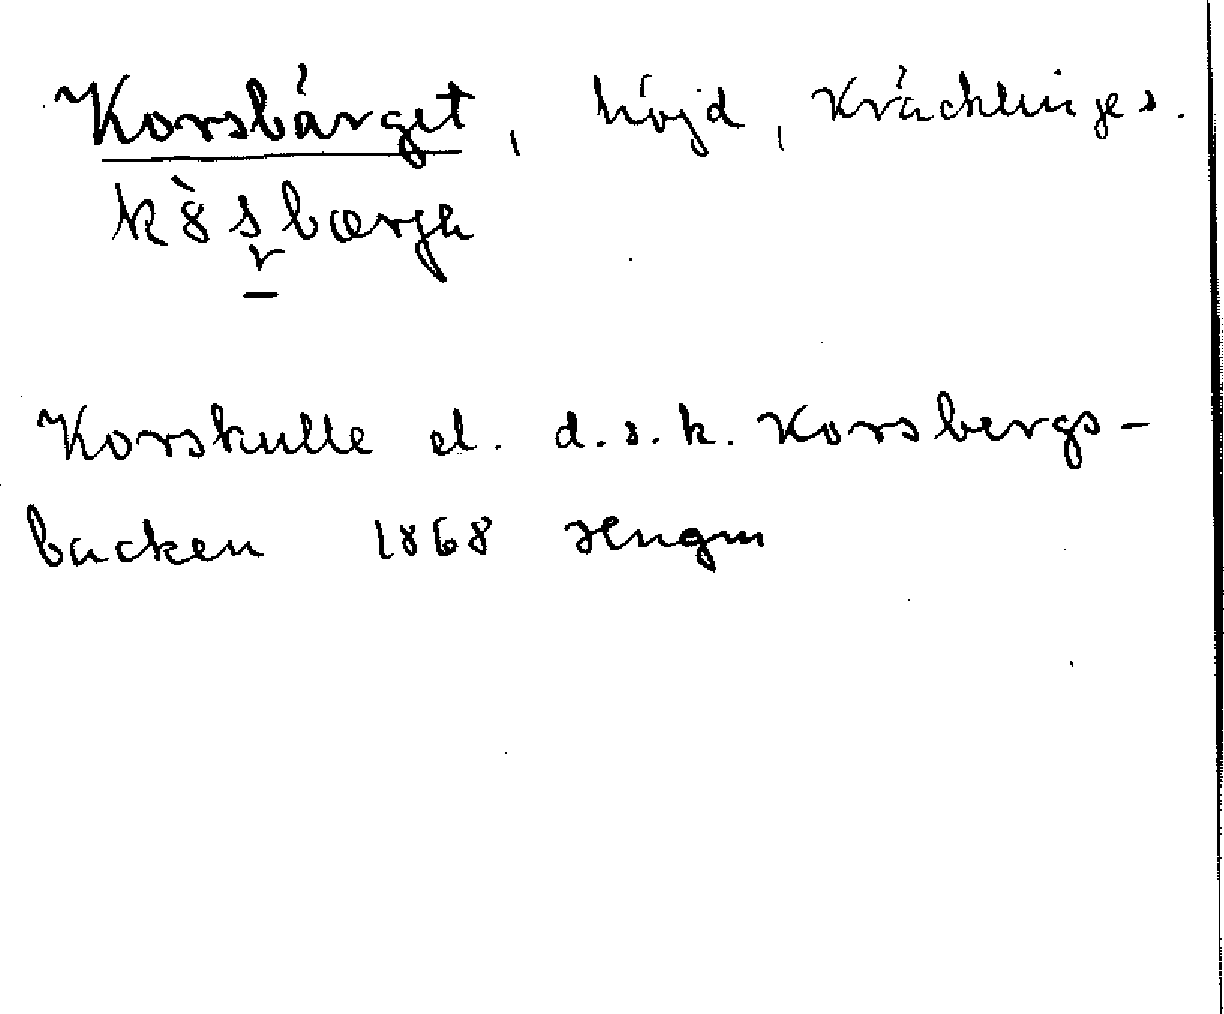 Korsbärget, höjd, Kräcklinge s.
kòsbærje
Korskulle el. d.s.k. Korsbergs-
backen 1868 Hngm